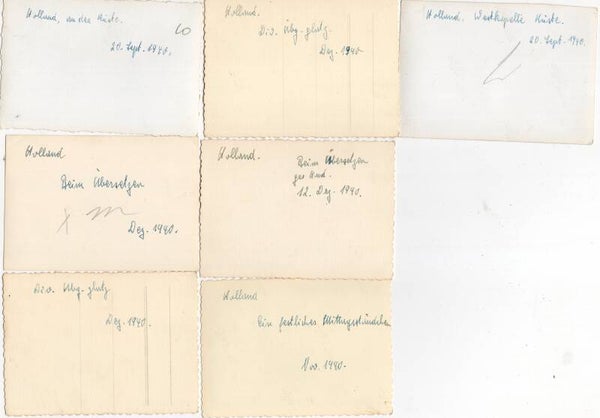 Holland, an der Küste.
20. Sept. 1940.
Holland.
Div. Übg.-platz.
Dez. 1940
Holland. Westkapelle Küste.
20. Sept. 1940.
Holland
Beim Übersetzen
Dez. 1940.
Holland.
Beim Übersetzen
12. Dez. 1940.
Div. Übg.-platz
Dez. 1940.
Holland
Ein festliches
Nov. 1940.